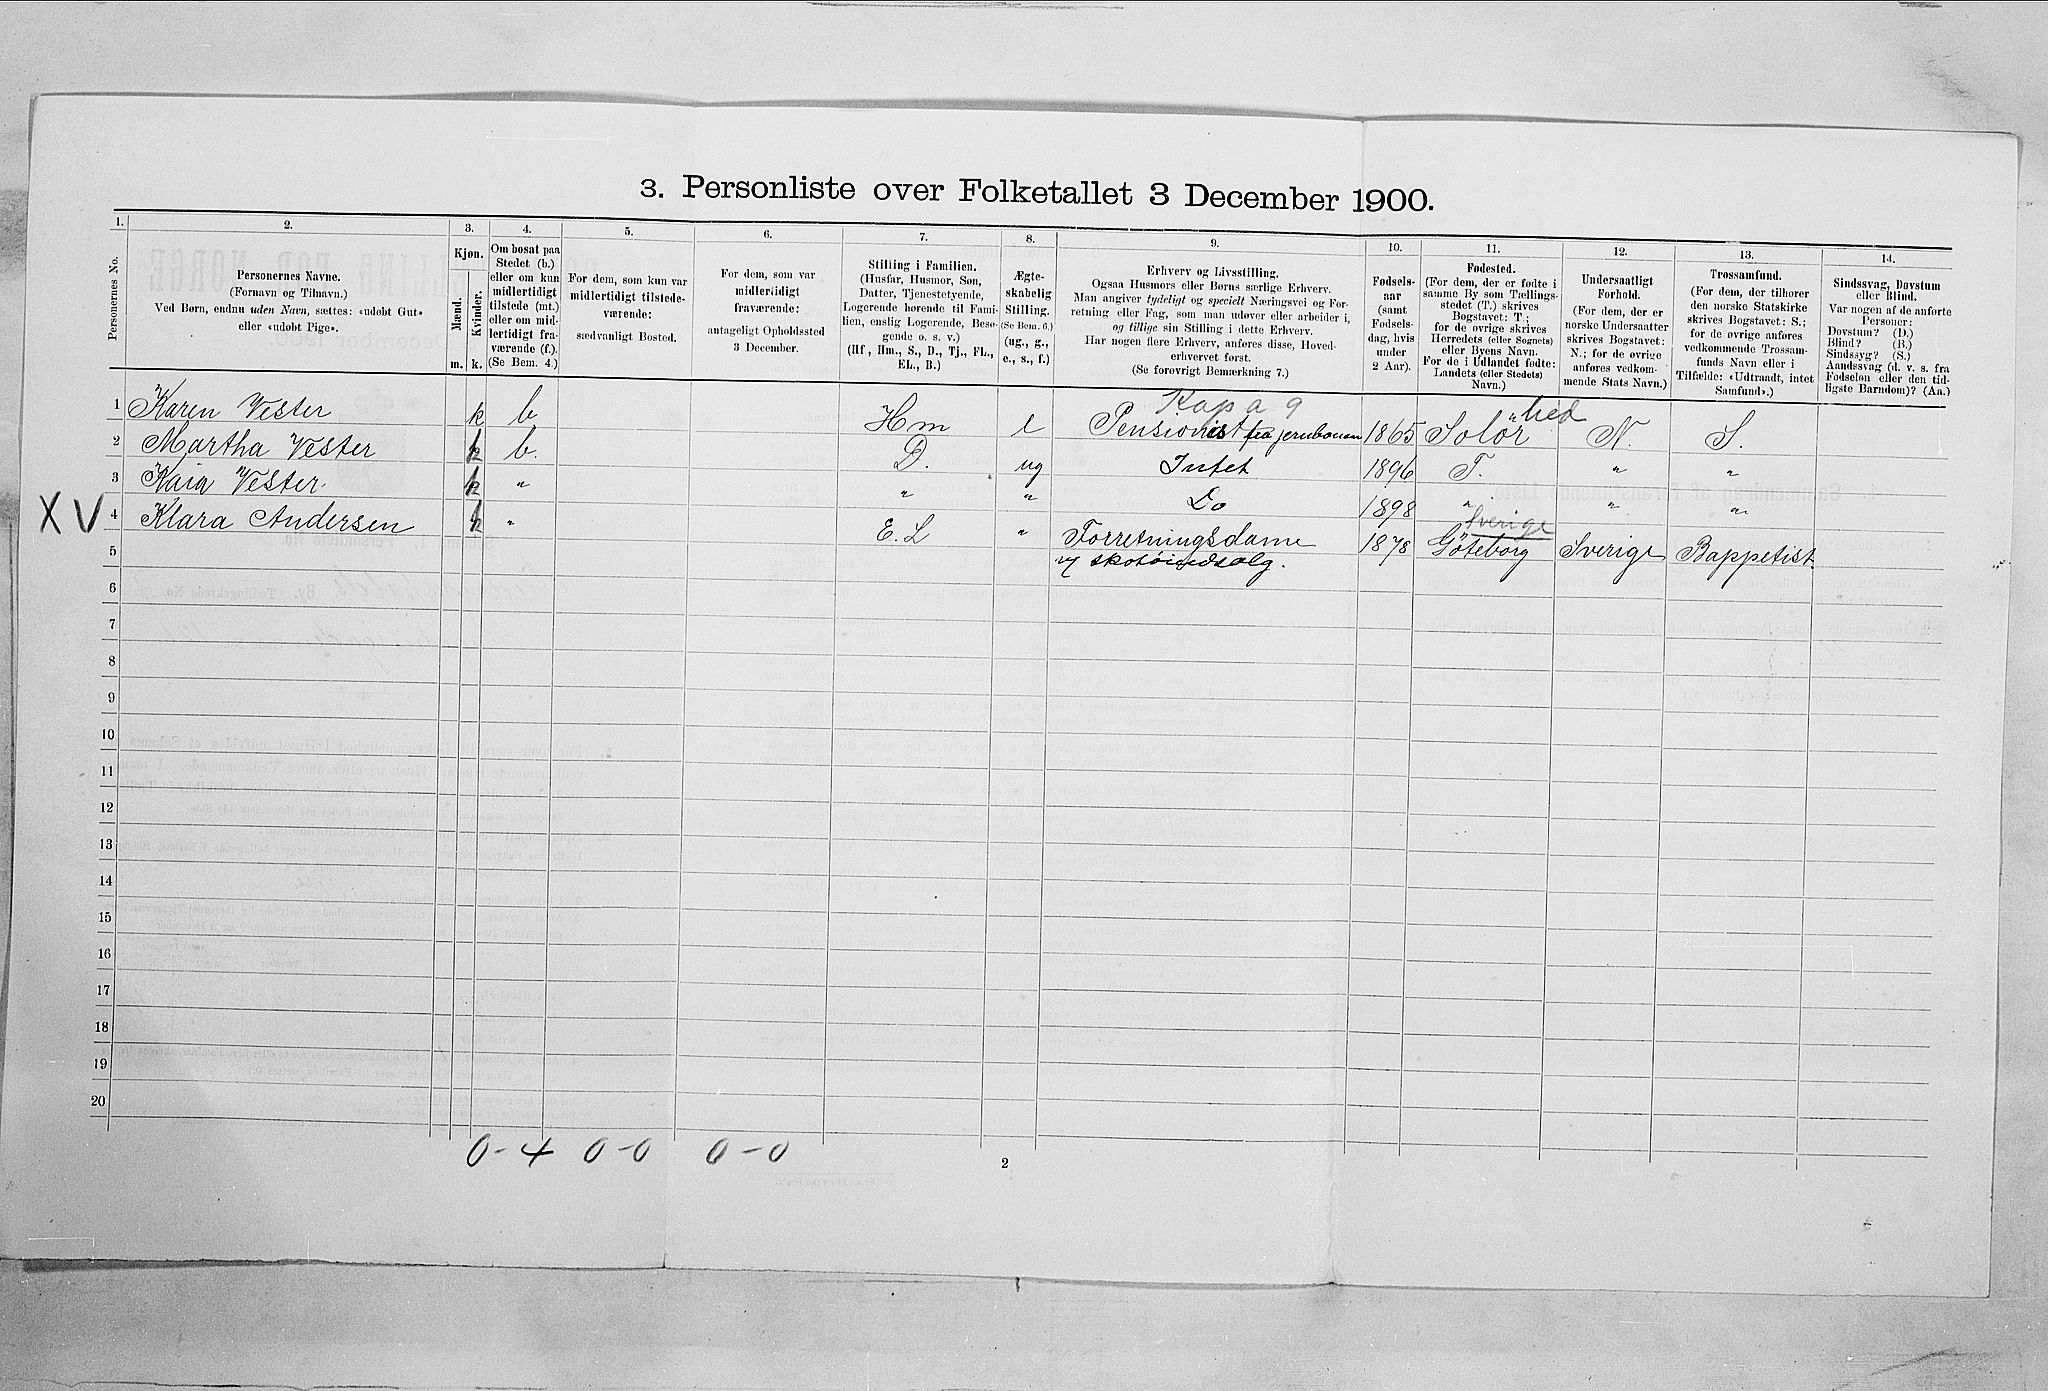 3. Personliste over Folketallet 3 December 1900.
1. 2. 3. 4. 5. 6. 7. 8. 9. 10. 11. 12. 13. 14.
Personernes No.
Personernes Navne.
(Fornavn og Tilnavn.)
Ved Børn, endnu uden Navn, sættes: «udøbt Gut»
eller «udøbt Pige».
Kjøn.
Mænd.
Kvinder.
m. k.
Om bosat paa
Stedet (b.)
eller om kun
midlertidigt
tilstede (mt.)
eller om mid-
lertidigt fra-
værende (f.).
(Se Bem. 4.)
For dem, som kun var
midlertidigt tilstede-
værende:
sædvanligt Bosted.
For dem, som var
midlertidigt
fraværende:
antageligt Opholdssted
3 December.
Stilling i Familien.
(Husfar, Husmor, Søn,
Datter, Tjenestetyende,
Logerende hørende til Fami-
lien, enslig Logerende, Besø-
gende o. s. v.)
(Hf, Hm., S., D., Tj., FL.,
EL., B.)
Ægte-
skabelig
Stilling.
(Se Bem. 6.)
(ug., g.,
e., s., f.)
Erhverv og Livsstilling.
Ogsaa Husmors eller Børns særlige Erhverv.
Man angiver tydeligt og specielt Næringsvei og For-
retning eller Fag, som man udøver eller arbeider i,
og tillige sin Stilling i dette Erhverv.
Har nogen flere Erhverv, anføres disse, Hoved-
erhvervet først.
(Se forøvrigt Bemærkning 7.)
Fødsels-
aar
(samt
Fødsels-
dag, hvis
under
2 Aar).
Fødested.
(For dem, der er fødte i
samme By som Tællings-
stedet (T.) skrives
Bogstavet: T.;
for de øvrige skrives
Herredets (eller Sognets)
eller Byens Navn.
For de i Udlandet fødte:
Landets (eller Stedets)
Navn.)
Undersaatligt
Forhold.
(For dem, der er
norske Undersaatter
skrives Bogstavet:
N.; for de øvrige
anføres vedkom-
mende Stats Navn.)
Trossamfund.
(For dem, der tilhører
den norske Statskirke
skrives Bogstavet: S.;
for de øvrige anføres
vedkommende Trossam-
funds Navn eller i
Tilfælde: «Udtraadt, intet
Samfund».)
Sindssvag, Døvstum
eller Blind.
Var nogen af de anførte
Personer:
Døvstum? (D.)
Blind? (B.)
Sindssyg? (S.)
Aandssvag (d. v. s. fra
Fødselen eller den tid-
ligste Barndom)? (Aa.)
Kap a 9
hed
1 Karen Vester k b Hm e Pensionist fra jernbanen 1865 Solør N. S.
2 Martha Vester k b. D. ug Intet 1896 T. " "
3 Kaia Vester k " " " Do 1898 " " "
Sverige
X V 4 Klara Andersen k " E. L " Forretningsdame 1878 Göteborg Sverige Bappetist.
5 v/ skotöiudsalg.
6
7
8
9
10
11
12
13
14
15
16
17
18
19
20
0-4 0-0 0-0
2